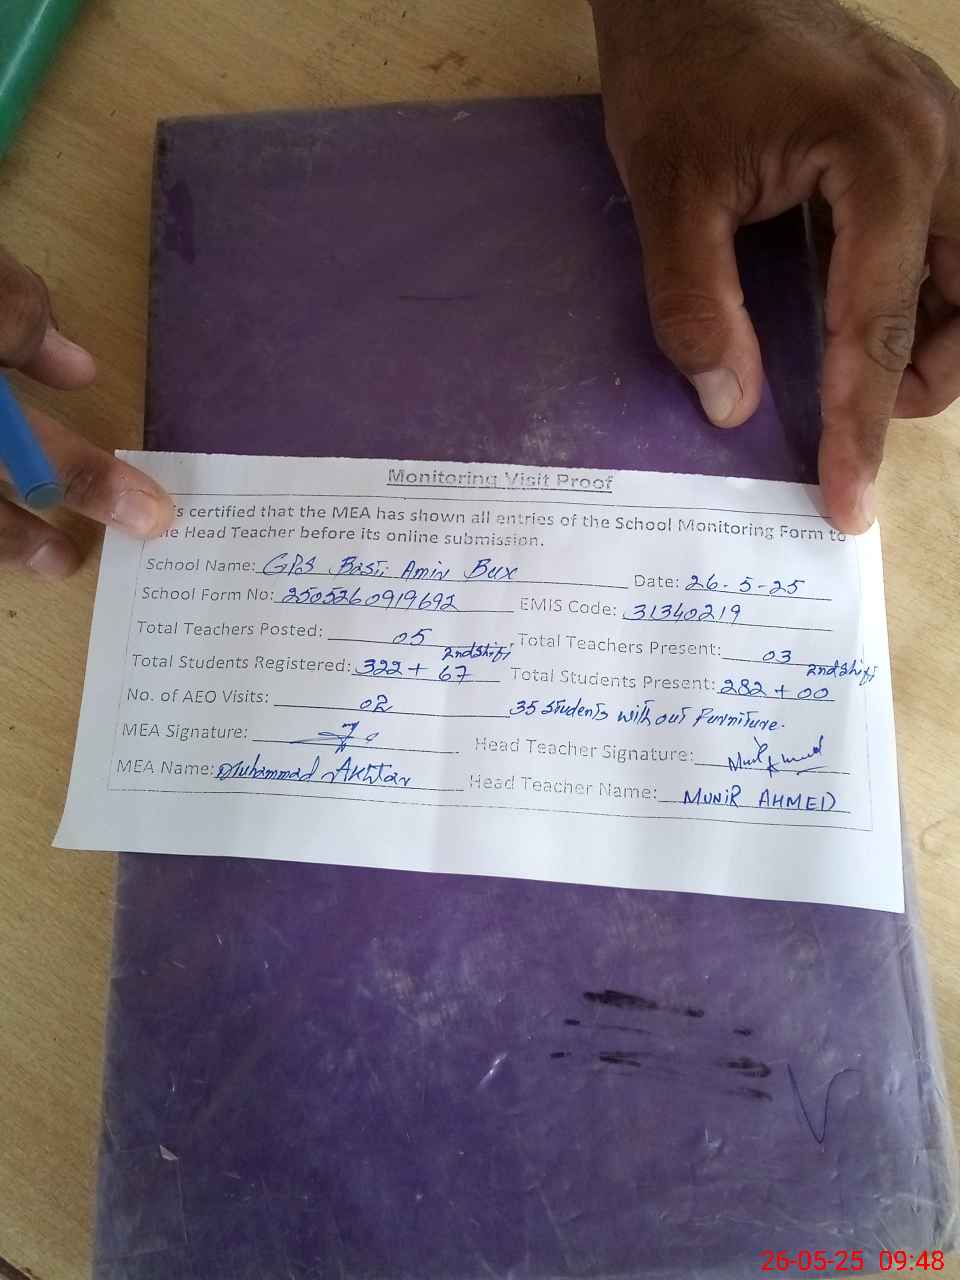 Monitoring Visit Proof
is certified that the MEA has shown all entries of the School Monitoring Form to
Head Teacher before its online submission.
School Name: GPS Basti Amin Bux Date: 26-5-25
School Form No: 2505260919692 EMIS Code: 31340219
Total Teachers Posted: 05 Total Teachers Present: 03
Total Students Registered: 322 + 67 2ndshift Total Students Present: 282 + 00 2ndshift
No. of AEO Visits: 02 35 Students without Furniture.
MEA Signature: Head Teacher Signature:
MEA Name: Muhammad Akhtar Head Teacher Name: MUNIR AHMED
26-05-25 09:48